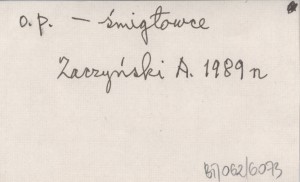 o.p. – śmigłowce
Zaczyński A. 1989 n
BT/062/6093